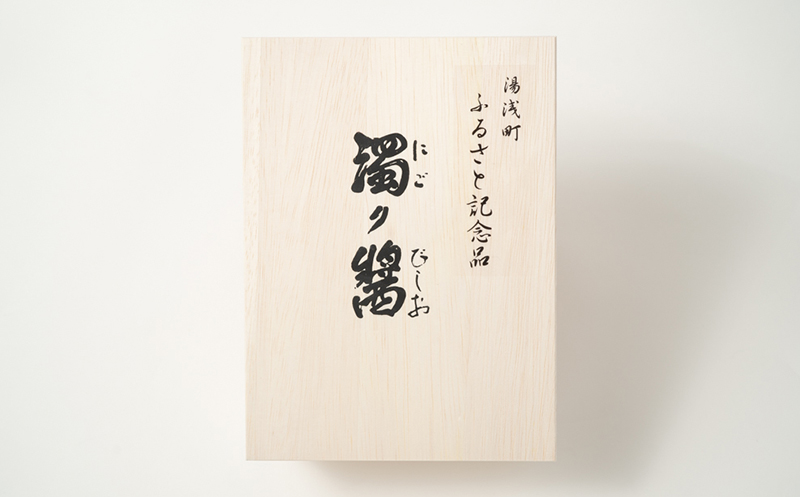 湯浅町
ふるさと記念品
濁り醤
にご
びしお